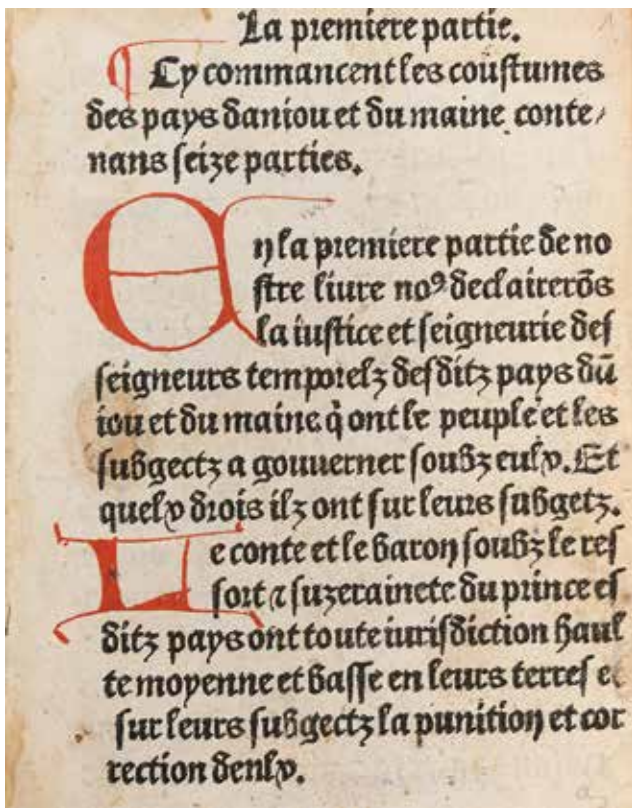 La premiere partie.
¶ Cy commancent les coustumes
des pays daniou et du maine conte/
nans seize parties.
En la premiere partie de no
stre liure noꝰ declairerõs
la iustice et seigneurie des
seigneurs temporelz desditz pays dũ
iou et du maine q̇ ont le peuple et les
subgectz a gouuerner soubz eulx. Et
quelx drois ilz ont sur leurs subgetz.
Le conte et le baron soubz le res
sort ⁊ suzerainete du prince es
ditz pays ont toute iurisdiction haul
te moyenne et basse en leurs terres et
sur leurs subgectz la punition et cor
rection denlx.